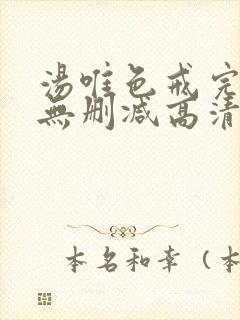 湯唯色戒完
無删减高清
本名和幸（本